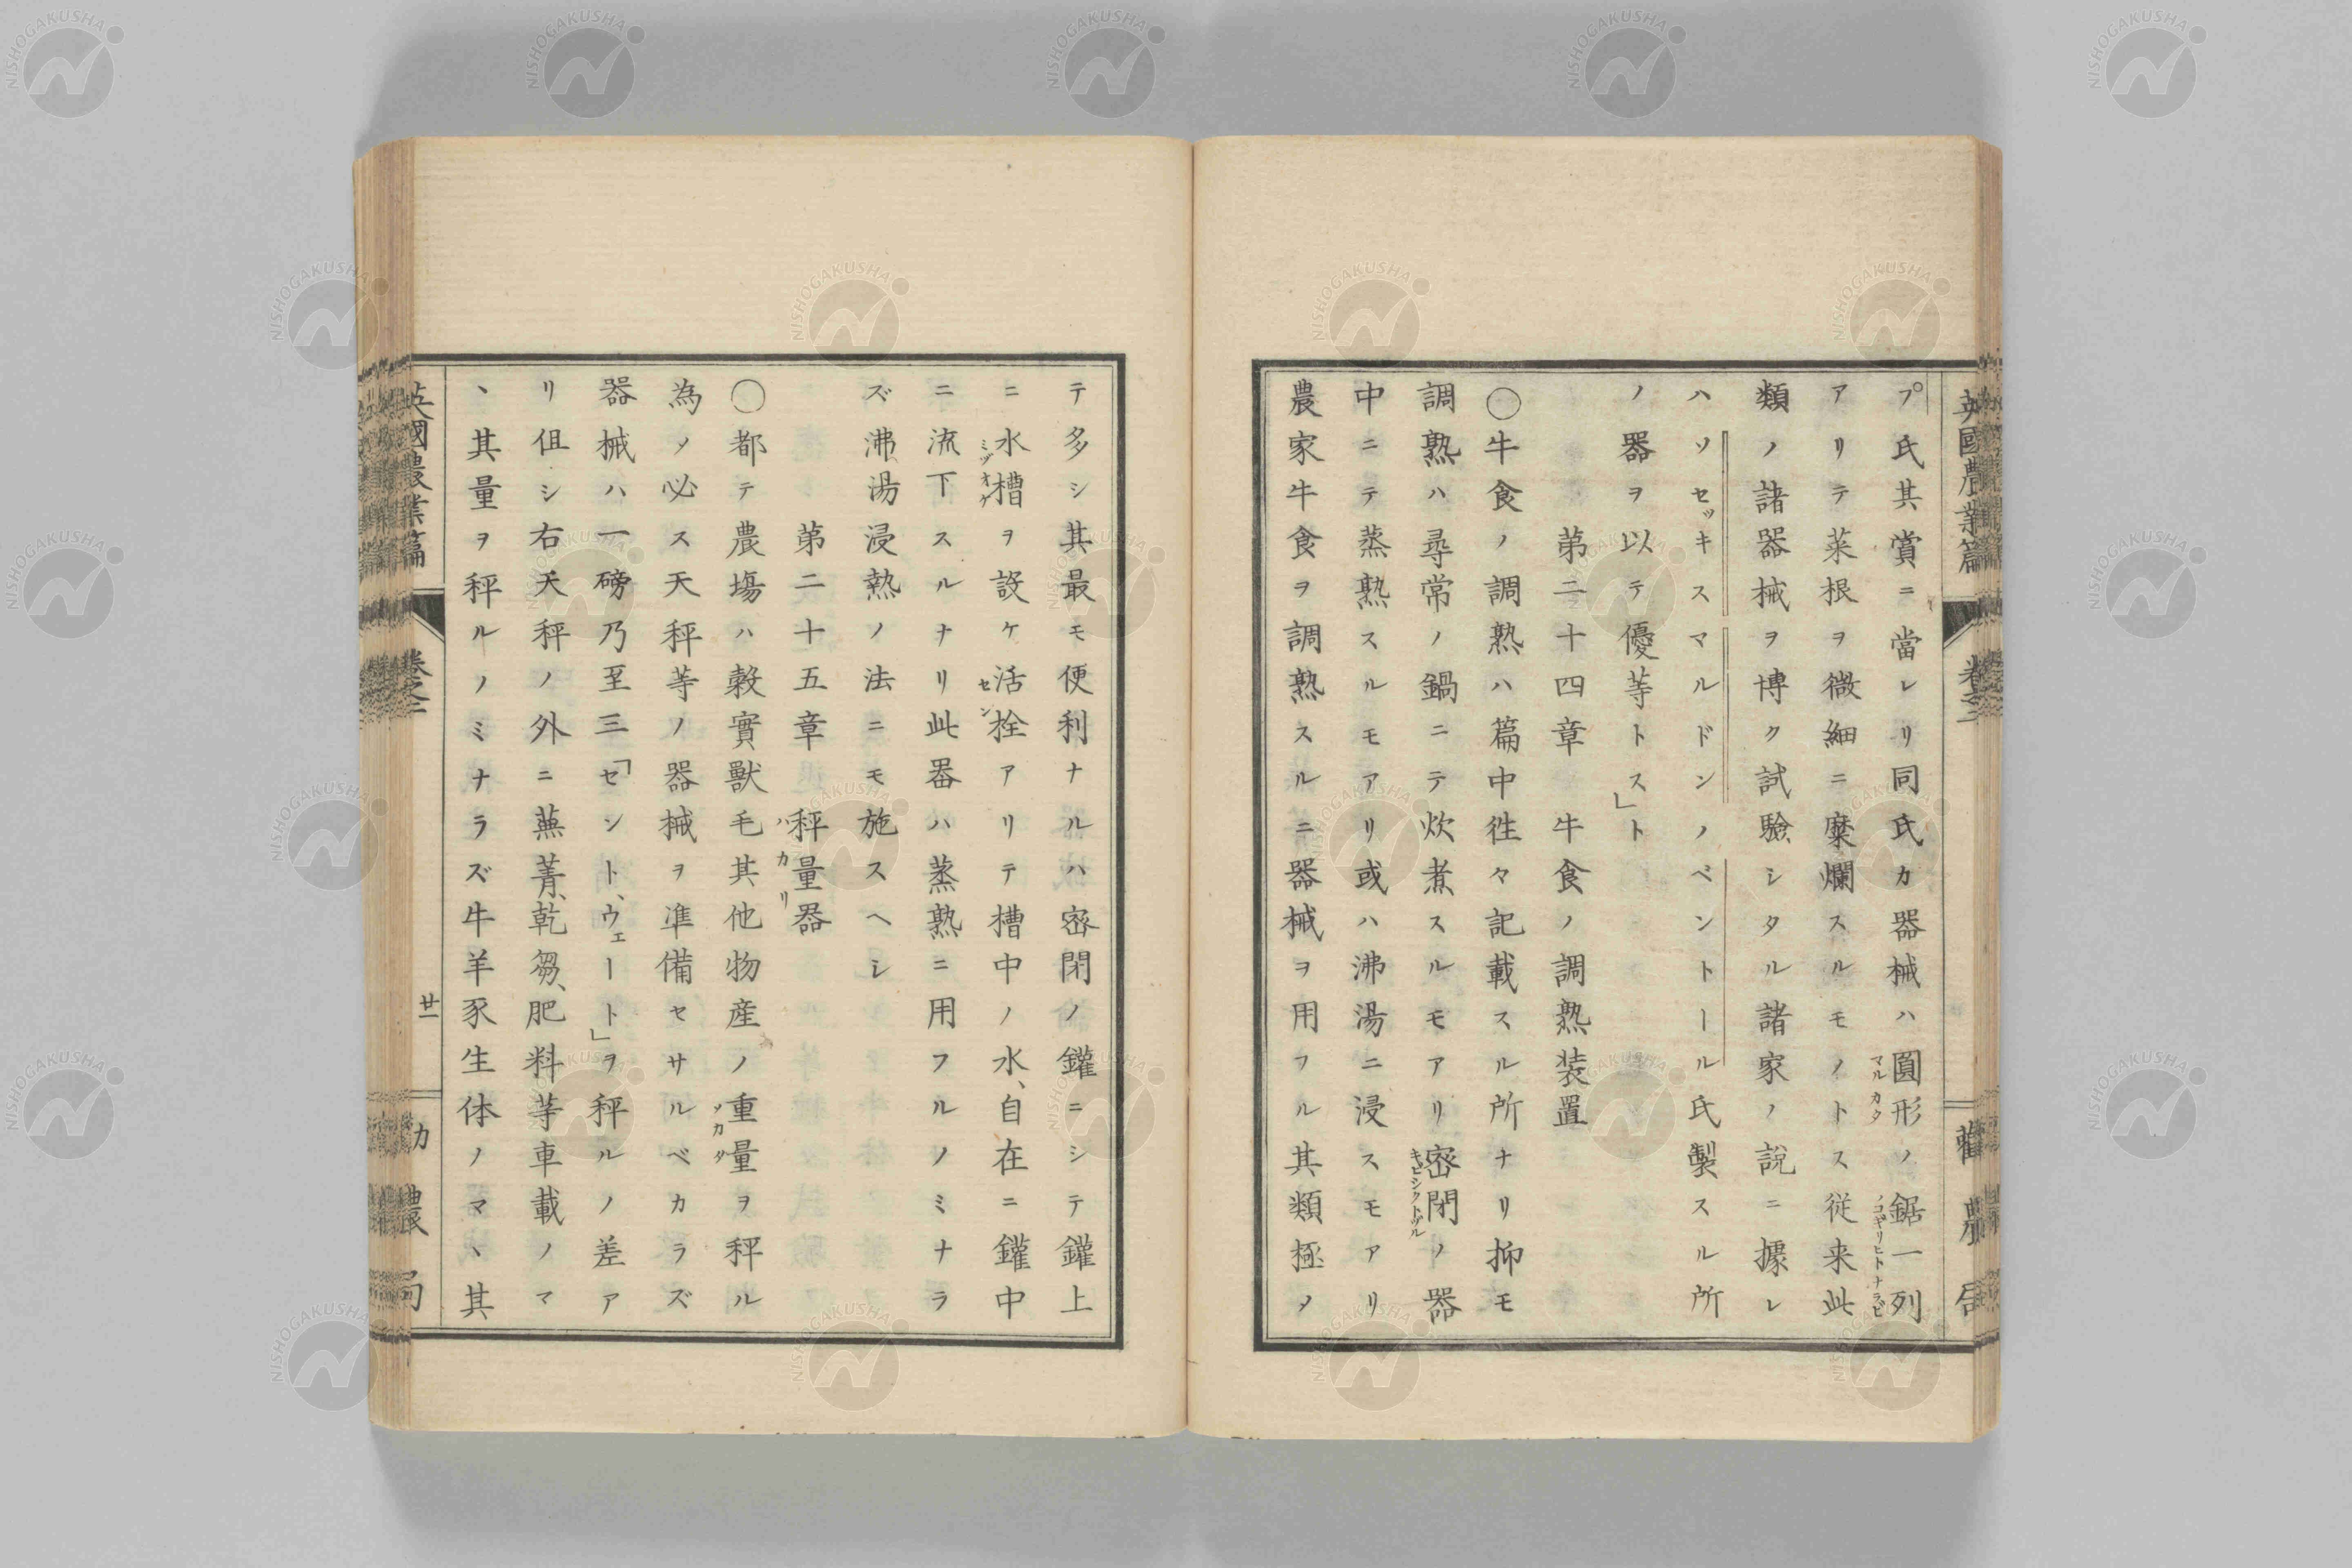 プ氏其賞ニ當レリ同氏カ器械ハ圓形ノ鋸一列
マルカタ
ノコギリヒトナラビ
アリテ菜根ヲ微細ニ糜爛スルモノトス従来此
類ノ諸器械ヲ博ク試驗シタル諸家ノ說ニ據レ
ハソセッキスマルドンノベントール氏製スル所
ノ器ヲ以テ優等トス」ト
第二十四章 牛食ノ調熟装置
〇牛食ノ調熟ハ篇中徃々記載スル所ナリ抑モ
調熟ハ尋常ノ鍋ニテ炊煮スルモアリ密閉ノ器
キビシクトヅル
中ニテ蒸熟スルモアリ或ハ沸湯ニ浸スモアリ
農家牛食ヲ調熟スルニ器械ヲ用フル其類極メ
英國農業篇 卷之二 勸農局
テ多シ其最モ便利ナルハ密閉ノ鑵ニシテ鑵上
ニ水槽ヲ設ケ活栓アリテ槽中ノ水、自在ニ鑵中
ミヅオケ
セン
ニ流下スルナリ此器ハ蒸熟ニ用フルノミナラ
ズ沸湯浸熱ノ法ニモ施スヘシ
第二十五章 秤量器
ハカリ
〇都テ農場ハ穀實獸毛其他物産ノ重量ヲ秤ル
メカタ
為メ必ス天秤等ノ器械ヲ準備セサルベカラズ
器械ハ一磅乃至三「セント、ウェート」ヲ秤ルノ差ア
リ但シ右天秤ノ外ニ蕪菁、乾芻、肥料等車載ノマ
ヽ其量ヲ秤ルノミナラズ牛羊豕生体ノマヽ其
英國農業篇 卷之二 廿一 農局
NISHOGAKUSHA